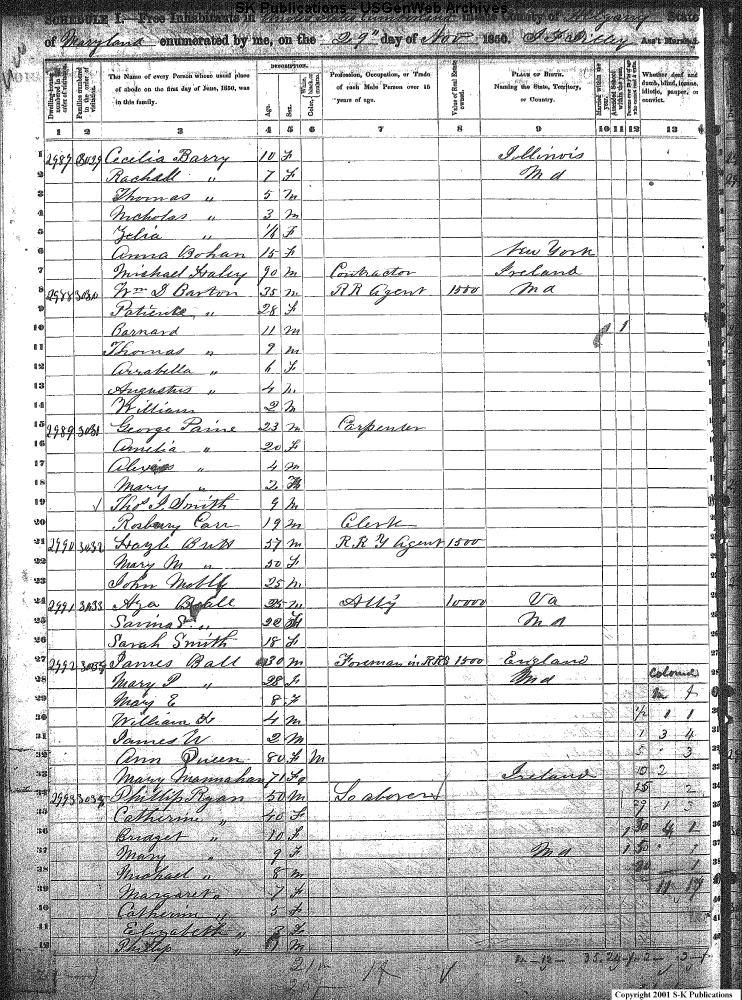 SK Publications - USGenWeb Archives
SCHEDULE I.—Free Inhabitants in in the County of Allegany State
of Maryland enumerated by me, on the 29" day of Nov 1850. Ass't Marshal.
DESCRIPTION.
Dwelling-houses numbered in the order of visitation.
Families numbered in the order of visitation.
The Name of every Person whose usual place of abode on the first day of June, 1850, was in this family.
Age.
Sex.
Color, White, black or mulatto.
Profession, Occupation, or Trade of each Male Person over 15 years of age.
Value of Real Estate owned.
PLACE OF BIRTH. Naming the State, Territory, or Country.
Married within the year.
Attended School within the year.
Whether deaf and dumb, blind, insane, idiotic, pauper, or convict.
1 2 3 4 5 6 7 8 9 10 11 12 13
1 2987 3029 Cecilia Barry 10 F Illinois
2 Rachall " 7 F Md
3 Thomas " 5 M
4 Nicholas " 3 M
5 Zelia " F
6 Anna Bohan 15 F New York
7 Michael Haley 90 M Contractor Ireland
8 2988 3030 Wm S Barton 35 M RR Agent 1500 Md
9 Patience " 28 F
10 Barnard 11 M 1
11 Thomas " 9 M
12 Arrabella " 6 F
13 Augustus " 4 M
14 William 2 M
15 2989 3031 George Paine 23 M Carpenter
16 Amelia " 20 F
17 " 4 M
18 Mary " 2 F
19 Thos J. Smith 9 M
20 Rosbury Carr 19 M Clerk
21 2990 3032 Butt 57 M R.R.Y Agent 1500
22 Mary M " 50 F
23 John 25 M
24 2991 3033 Aza 25 M Atty 10000 Va
25 " F Md
26 Sarah Smith 18 F
27 2992 3034 James Ball 30 M Foreman in RR 1500 England
28 Mary P " 28 F Md
29 Mary E 8 F
30 William 4 M
31 James W 2 M
32 Ann Queen 80 F M
33 Mary Mannahan 71 F Ireland
34 2993 3035 Phillip Ryan 50 M
35 Catherine " 40 F
36 Bridget " 10 F 1
37 Mary " 9 F Md 1
38 Michael " 8 M
39 Margaret " 7 F
40 Catherine " 5 F
41 Elizabeth " 3 F
42 Phillip " M
Colored
M F
1/2 1 1
1 3 4
5 3
10 2
15 2
29 1 3
30 4 1
50 1
1
11 17
Copyright 2001 S-K Publications